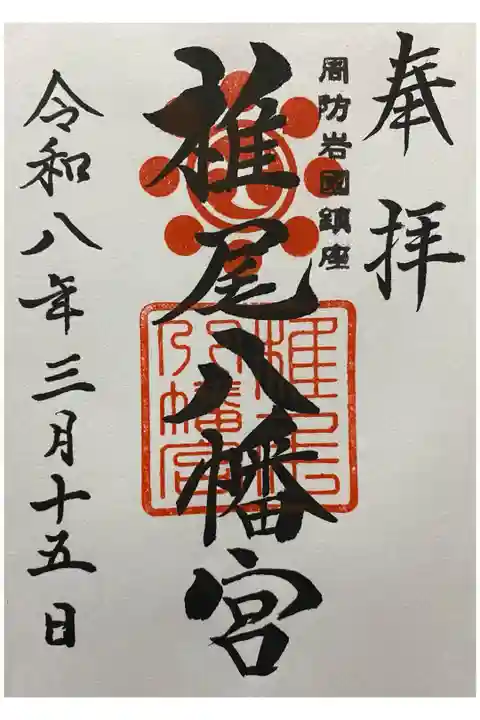 奉拝
周防岩國鎮座
椎尾八幡宮
椎尾八幡宮
令和八年三月十五日